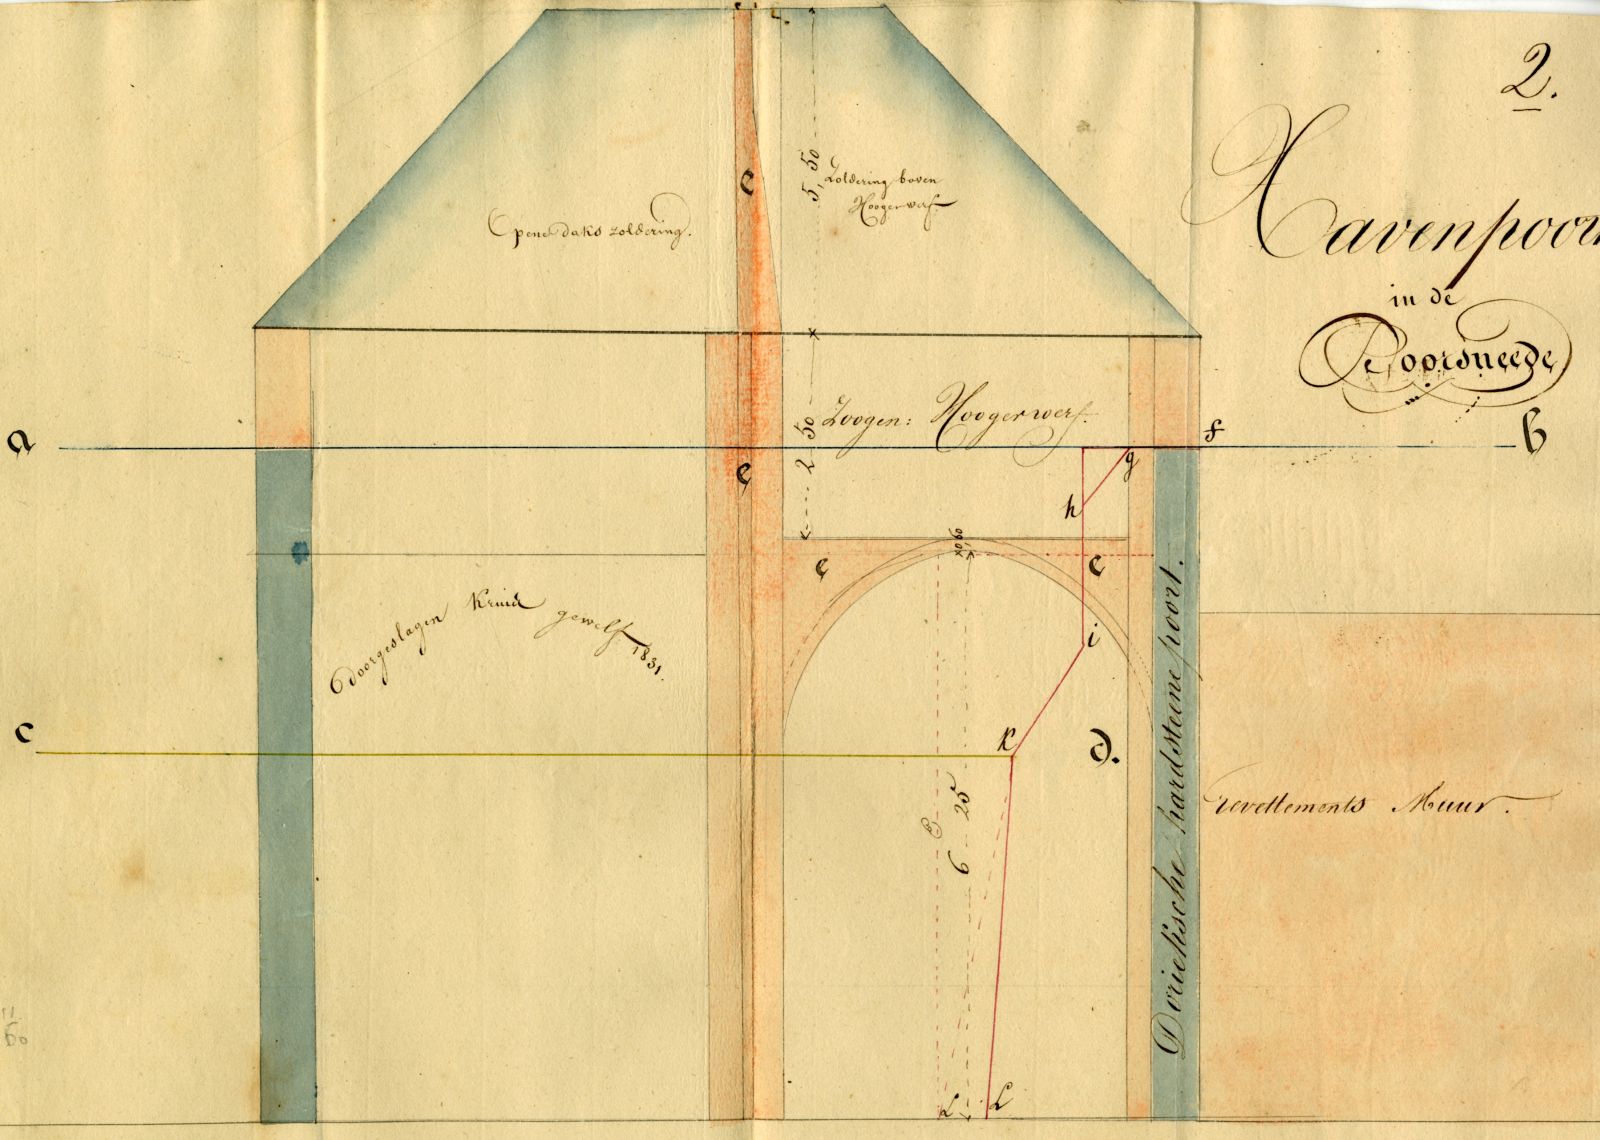 2.
Havenpoort
in de
Doorsneede
Opene daks zoldering.
e
5,50
Zoldering boven
Hoogerwerf
2 50
Zoogen: Hoogerwerf.
a
f
b
e
g
h
0,60
e
e
i
doorgeslagen Kruid gewelf 1831.
c
k
d.
6 25
Doricksche hardsteene poort.
revettements Muur.
11
60
L
L